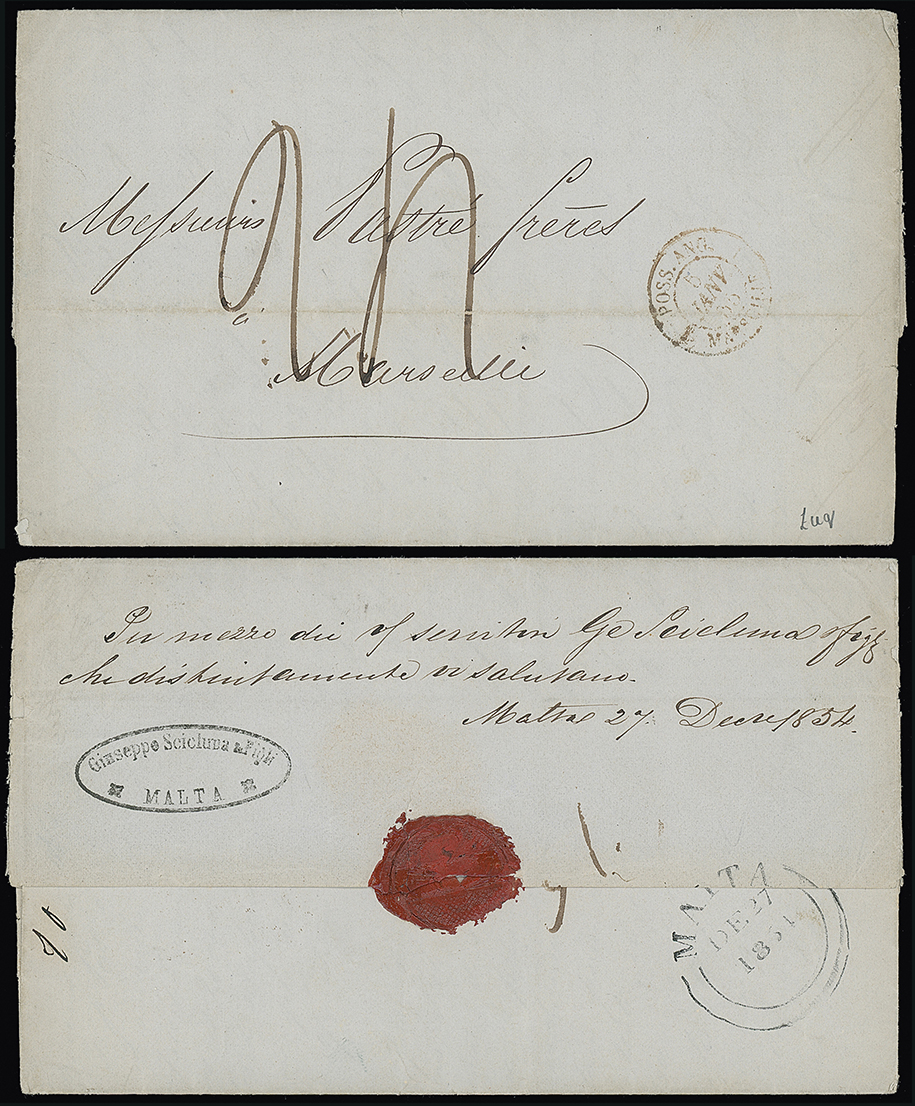 Messieurs Pastré frères
à
Marseille
POSS. ANG.
5
JANV
55
MARSEILLE
Per mezzo dei servitori Ge Scicluna figli
che distintamente vi salutano.
Malta 27. Decre 1854.
Giuseppe Scicluna & Figli
MALTA
MALTA
DE 27
1854